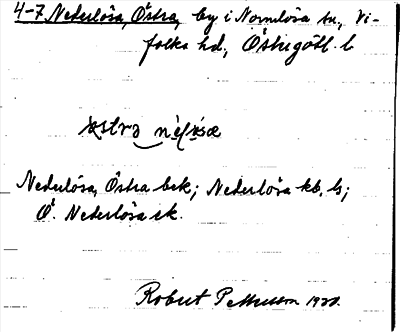 4-7 Nederlösa, Östra, by i Normlösa sn, Vi-
folka hd, Östergötl. l.
Nederlösa, Östra bek; Nederlösa kb, ls;
Ö. Nederlösa ek.
Robert Pettersson 1920.